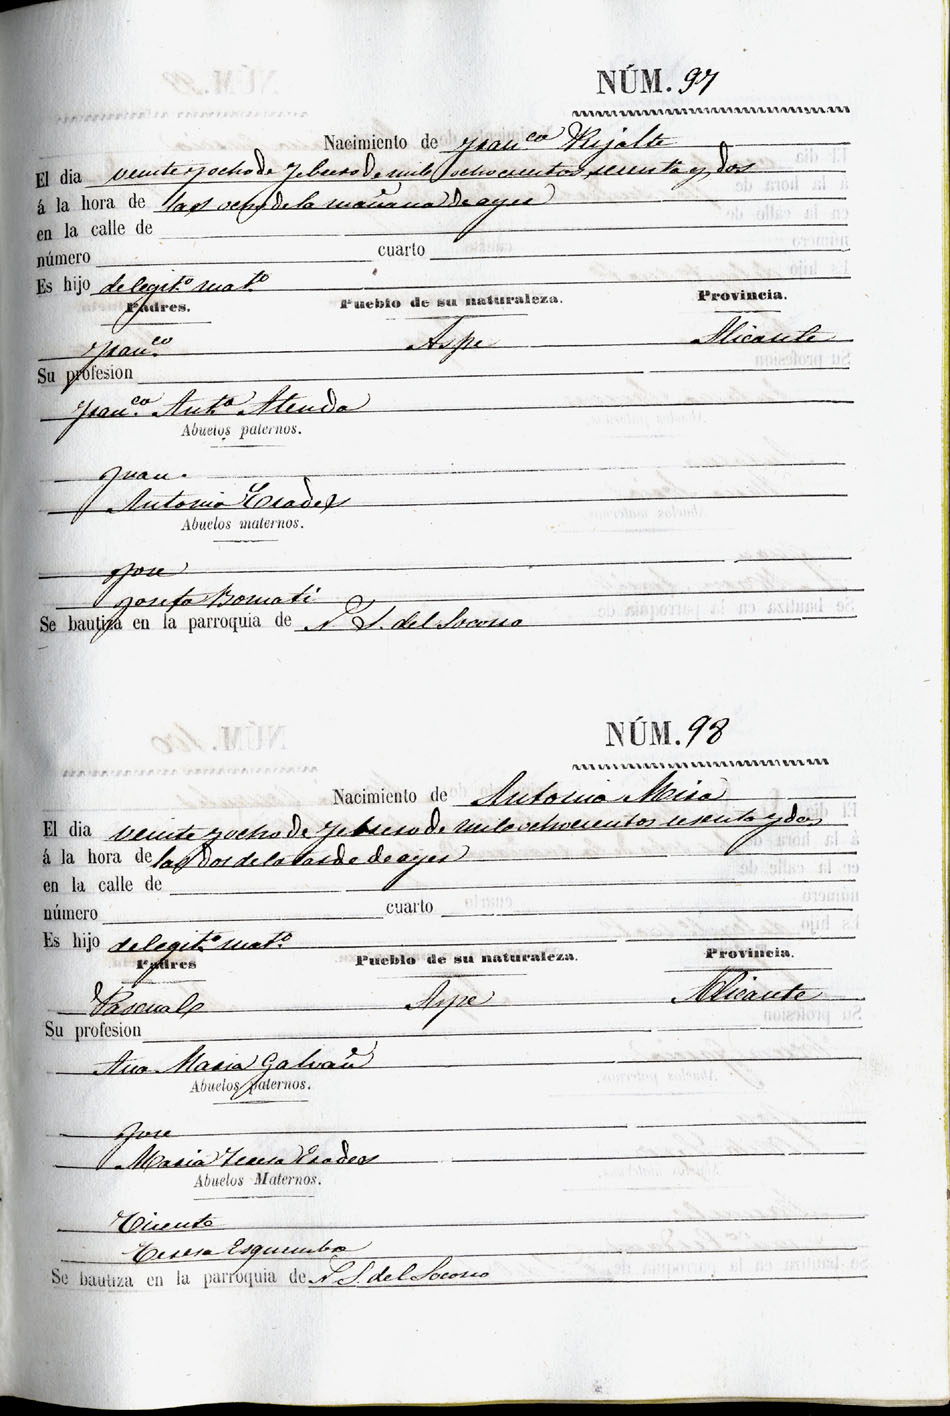 NÚM. 97
Nacimiento de Fran.co Rijalte
El dia veinte y ocho de Febrero de mil ochocientos sesenta y dos
á la hora de las ocho de la mañana de ayer
en la calle de
número cuarto
Es hijo de legit.o mat.o
Padres. Pueblo de su naturaleza. Provincia.
Fran.co Aspe Alicante
Su profesion
Fran.ca Ant.a Atenda
Abuelos paternos.
Juan.
Antonia Erades
Abuelos maternos.
Jose
Josefa Bomati
Se bautiza en la parroquia de N. S. del Socorro
NÚM. 98
Nacimiento de Antonio Mira
El dia veinte y ocho de Febrero de mil ochocientos sesenta y dos
á la hora de las dos de la tarde de ayer
en la calle de
número cuarto
Es hijo de legit.o mat.o
Padres Pueblo de su naturaleza. Provincia.
Pascual Aspe Alicante
Su profesion
Ana Maria Galvañ
Abuelos paternos.
Jose
Maria Teresa Erades
Abuelos Maternos.
Vicente
Teresa Esquembre
Se bautiza en la parroquia de N. S. del Socorro